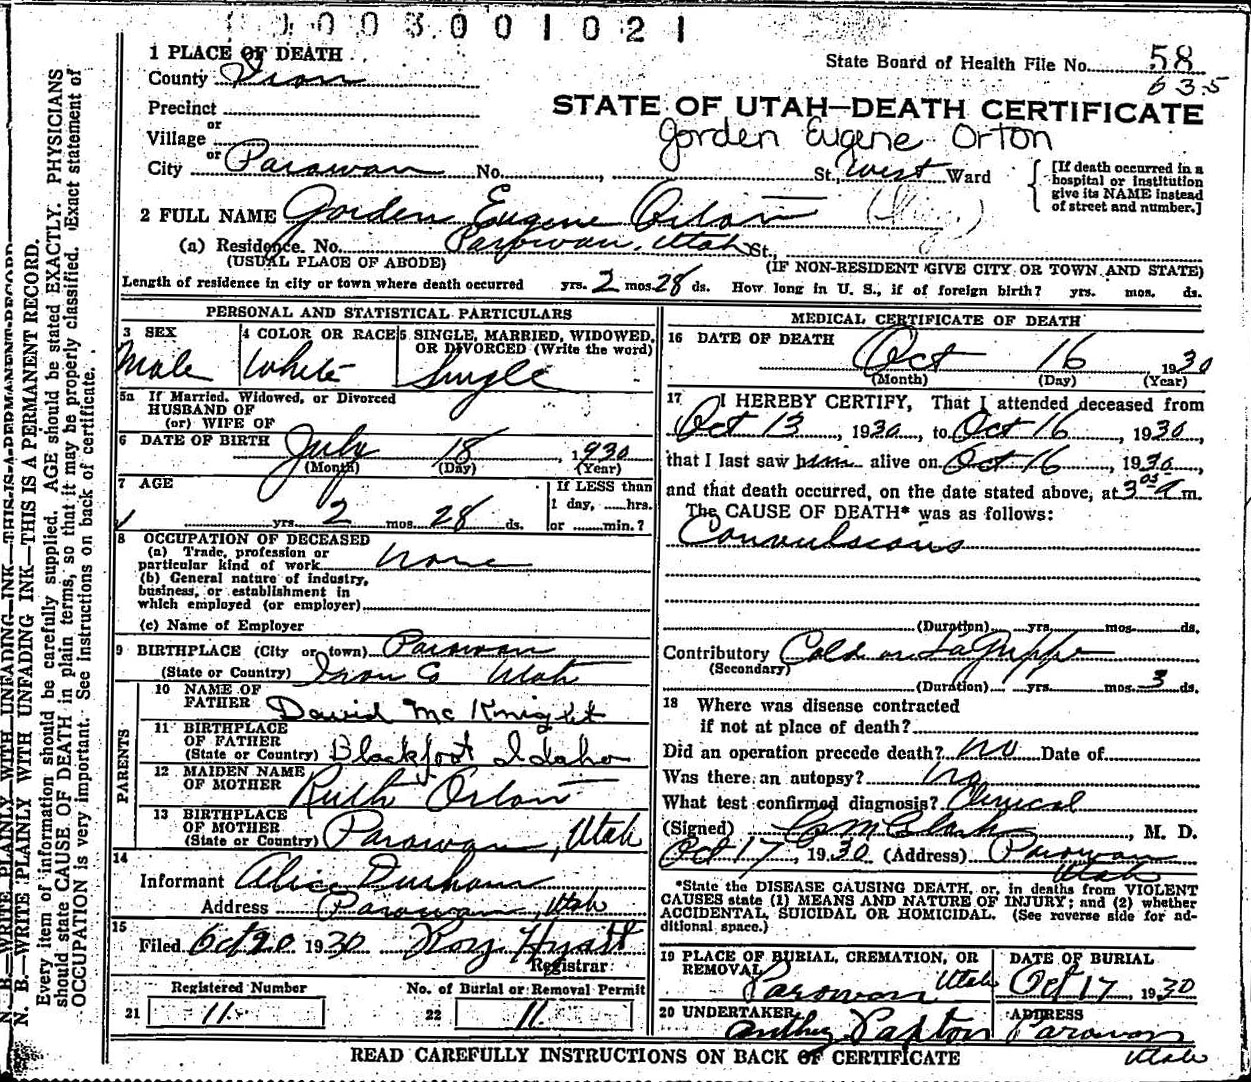 0003001021
1 PLACE OF DEATH
County Iron
State Board of Health File No. 58
635
Precinct
STATE OF UTAH—DEATH CERTIFICATE
or
Village
Gorden Eugene Orton
or
City Parowan No. , St., West Ward
[If death occurred in a hospital or institution give its NAME instead of street and number.]
2 FULL NAME Gorden Eugene Orton
(a) Residence. No. Parowan, Utah St.,
(USUAL PLACE OF ABODE) (IF NON-RESIDENT GIVE CITY OR TOWN AND STATE)
Length of residence in city or town where death occurred yrs. 2 mos. 28 ds. How long in U. S., if of foreign birth? yrs. mos. ds.
PERSONAL AND STATISTICAL PARTICULARS
3 SEX
Male
4 COLOR OR RACE
White
5 SINGLE, MARRIED, WIDOWED, OR DIVORCED (Write the word)
Single
5a If Married, Widowed, or Divorced
HUSBAND OF
(or) WIFE OF
6 DATE OF BIRTH July 18, 1930
(Month) (Day) (Year)
7 AGE
yrs. 2 mos. 28 ds.
If LESS than
1 day, ......hrs.
or ......min.?
8 OCCUPATION OF DECEASED
(a) Trade, profession or
particular kind of work none
(b) General nature of industry,
business, or establishment in
which employed (or employer)
(c) Name of Employer
9 BIRTHPLACE (City or town) Parowan
(State or Country) Iron Co Utah
PARENTS
10 NAME OF
FATHER David McKnight
11 BIRTHPLACE
OF FATHER
(State or Country) Blackfoot Idaho
12 MAIDEN NAME
OF MOTHER Ruth Orton
13 BIRTHPLACE
OF MOTHER
(State or Country) Parowan, Utah
14
Informant Alice Durham
Address Parowan, Utah
15
Filed Oct 20 1930 Roy Hyatt
Registrar
Registered Number
21 11
No. of Burial or Removal Permit
22 11
MEDICAL CERTIFICATE OF DEATH
16 DATE OF DEATH
Oct 16 1930
(Month) (Day) (Year)
17 I HEREBY CERTIFY, That I attended deceased from
Oct 13, 1930, to Oct 16, 1930
that I last saw him alive on Oct 16, 1930,
and that death occurred, on the date stated above, at 3 05 a m.
The CAUSE OF DEATH* was as follows:
Convulsions
(Duration) yrs. mos. ds.
Contributory Cold or LaGrippe
(Secondary)
(Duration) yrs. mos. 3 ds.
18 Where was disease contracted
if not at place of death?
Did an operation precede death? no Date of
Was there an autopsy? no
What test confirmed diagnosis? Clinical
(Signed) , M. D.
Oct 17, 1930 (Address) Parowan
Utah
*State the DISEASE CAUSING DEATH, or, in deaths from VIOLENT
CAUSES state (1) MEANS AND NATURE OF INJURY; and (2) whether
ACCIDENTAL, SUICIDAL OR HOMICIDAL. (See reverse side for ad-
ditional space.)
19 PLACE OF BURIAL, CREMATION, OR
REMOVAL
Parowan Utah
DATE OF BURIAL
Oct 17, 1930
20 UNDERTAKER
Paxton
ADDRESS
Parowan
Utah
READ CAREFULLY INSTRUCTIONS ON BACK OF CERTIFICATE
N. B.—WRITE PLAINLY WITH UNFADING INK—THIS IS A PERMANENT RECORD.
N. B.—WRITE PLAINLY WITH UNFADING INK—THIS IS A PERMANENT RECORD.
Every item of information should be carefully supplied. AGE should be stated EXACTLY. PHYSICIANS
should state CAUSE OF DEATH in plain terms, so that it may be properly classified. Exact statement of
OCCUPATION is very important. See instructions on back of certificate.